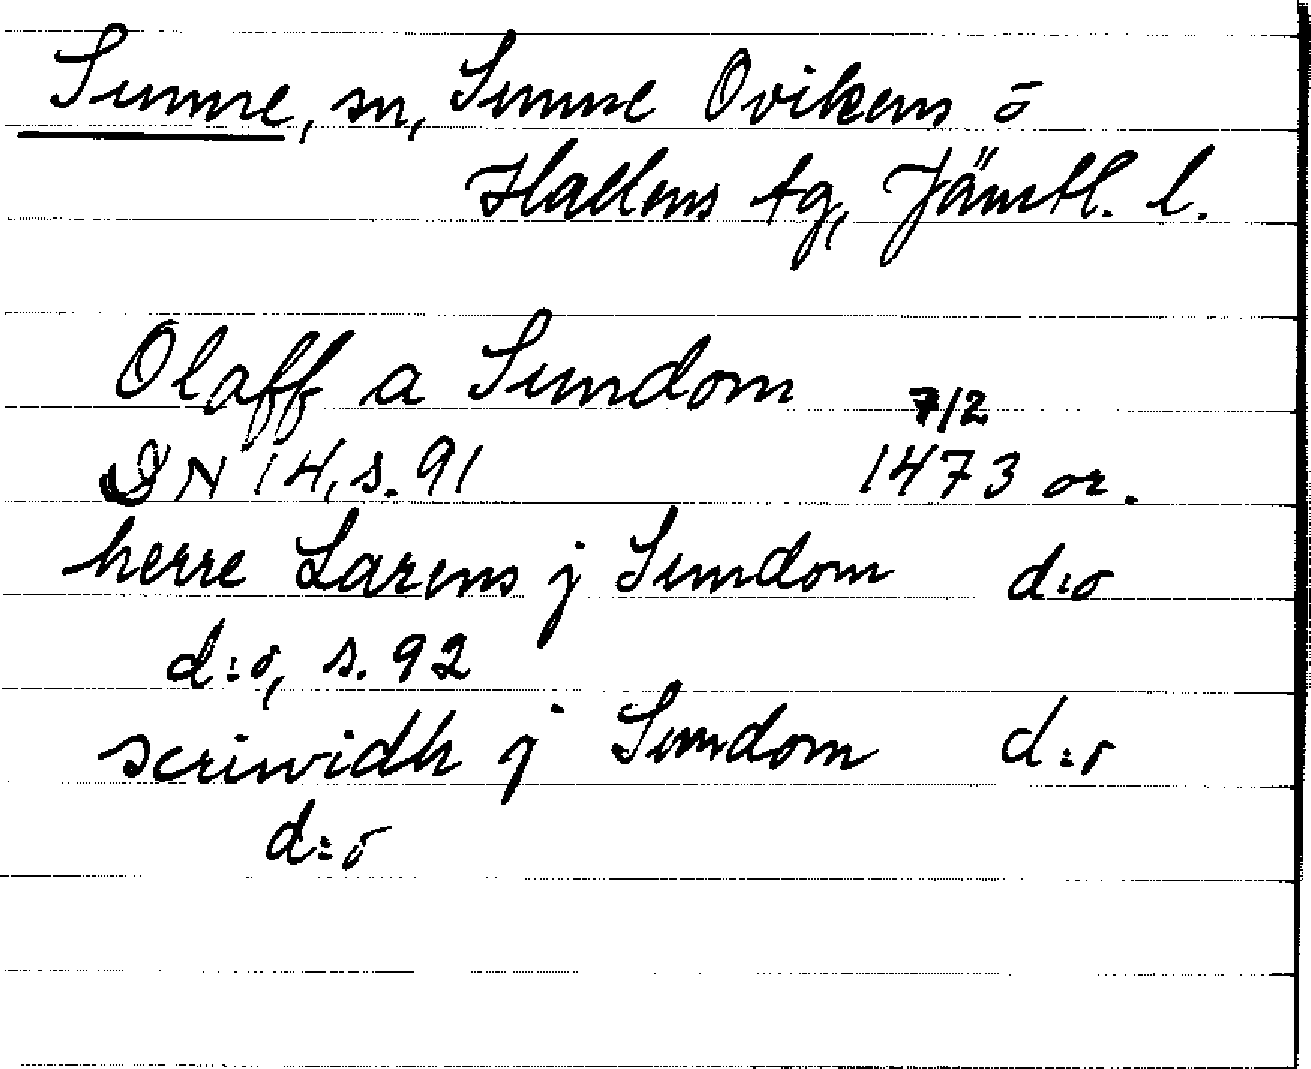 Sunne, sn, Sunne Ovikens o
Hallens tg, Jämtl. l.
Olaff a Sundom 7/2
DN 14, s. 91 1473 or.
herre Larens j Sundom d:o
d:o, s. 92
scriwidh j Sundom d:o
d:o